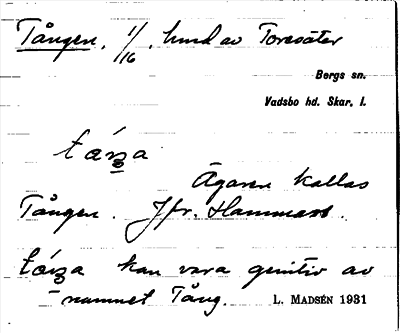 Tången. 1/16, hmd av Toresäter
Bergs sn.
Vadsbo hd. Skar. l.
Ägaren kallas
Tången. Jfr. Hammars.
kan vara genitiv av
namnet Tång. L. MADSÉN 1931